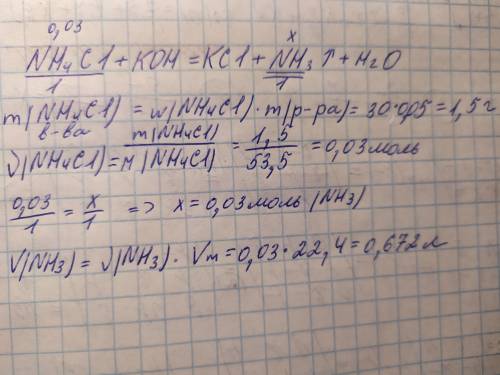 0,03 x
NH₄Cl + KOH = KCl + NH₃ ↑ + H₂O
1 1
m(NH₄Cl) = w(NH₄Cl) · m(р-ра) = 30·0,05 = 1,5 г
в-ва
ν(NH₄Cl) = m(NH₄Cl) / M(NH₄Cl) = 1,5 / 53,5 = 0,03 моль
0,03 / 1 = x / 1 => x = 0,03 моль (NH₃)
V(NH₃) = ν(NH₃) · Vm = 0,03 · 22,4 = 0,672 л